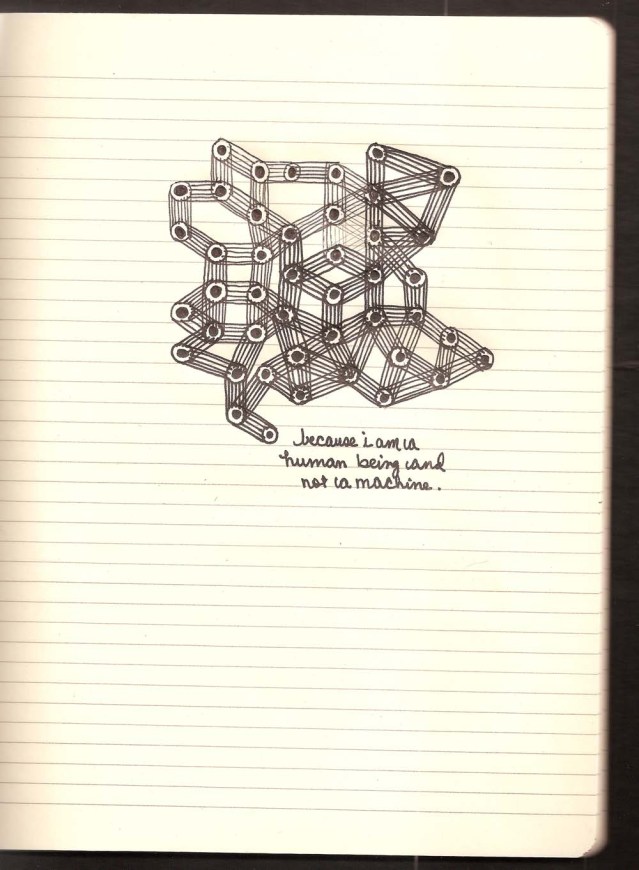 because i am a
human being and
not a machine.